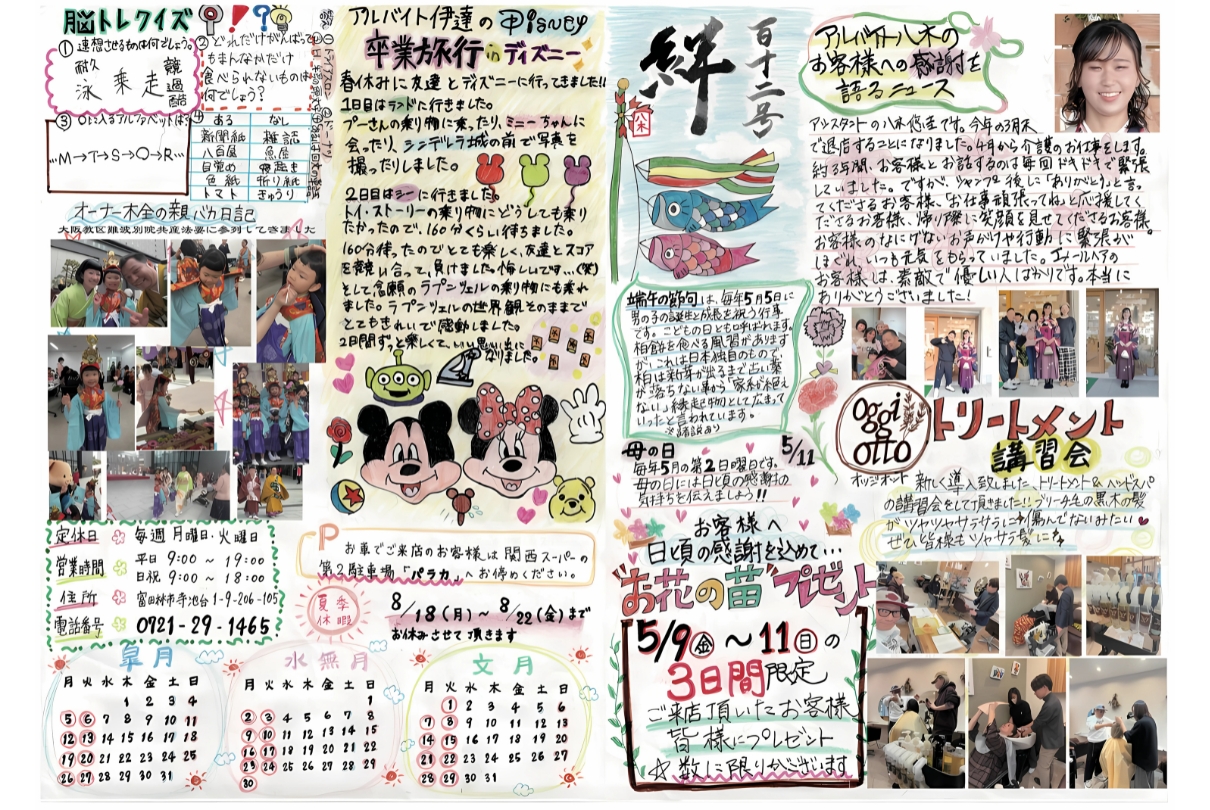 脳トレクイズ
① 連想させるものは何でしょう。
耐久
泳 乗 走
競
過酷
② どれだけがんばって
もまんなかだけ
食べられないものは
何でしょう?
③ ○に入るアルファベットは?
…M→T→S→O→R…
④ ある なし
新聞紙 雑誌
八百屋 魚屋
目覚め 寝起き
色紙 折り紙
トマト きゅうり
オーナー木全の親バカ日記
大阪教区難波別院共産法要に参列してきました
定休日 毎週 月曜日・火曜日
営業時間 平日 9:00 ~ 19:00
日祝 9:00 ~ 18:00
住所 富田林市寺池台1-9-206-105
電話番号 0721-29-1465
アルバイト伊達の Disney
卒業旅行 in ディズニー
春休みに友達とディズニーに行ってきました!!
1日目はランドに行きました。
プーさんの乗り物に乗ったり、ミニーちゃんに
会ったり、シンデレラ城の前で写真を
撮ったりしました。
2日目はシーに行きました。
トイ・ストーリーの乗り物にどうしても乗り
たかったので、160分くらい待ちました。
160分待ったのでとても楽しく、友達とスコア
を競い合って、負けました。悔しいです…(笑)
そして念願のラプンツェルの乗り物にも乗れ
ました。ラプンツェルの世界観そのままで
とてもきれいで感動しました。
2日間ずっと楽しくて、いい思い出に
なりました。
P お車でご来店のお客様は関西スーパーの
第2駐車場「パラカ」へお停めください。
夏季
休暇
8/18(月)~8/22(金)まで
お休みさせて頂きます
皐月
月 火 水 木 金 土 日
1 2 3 4
5 6 7 8 9 10 11
12 13 14 15 16 17 18
19 20 21 22 23 24 25
26 27 28 29 30 31
水無月
月 火 水 木 金 土 日
1
2 3 4 5 6 7 8
9 10 11 12 13 14 15
16 17 18 19 20 21 22
23 24 25 26 27 28 29
30
文月
月 火 水 木 金 土 日
1 2 3 4 5 6
7 8 9 10 11 12 13
14 15 16 17 18 19 20
21 22 23 24 25 26 27
28 29 30 31
絆
百十二号
八木
端午の節句は、毎年5月5日に
男の子の誕生と成長を祝う行事
です。こどもの日とも呼ばれます。
柏餅を食べる風習があります
が、これは日本独自のもので、
柏は新芽が出るまで古い葉
が落ちない事から「家系が絶え
ない」縁起物として広まって
いったと言われています。
※諸説あり
母の日 5/11
毎年5月の第2日曜日です。
母の日には日頃の感謝の
気持ちを伝えましょう!!
お客様へ
日頃の感謝を込めて…
"お花の苗"プレゼント
5/9(金)~11(日)の
3日間限定
ご来店頂いたお客様
皆様にプレゼント
☆数に限りがございます
アルバイト八木の
お客様への感謝を
語るニュース
アシスタントの八木悠莉です。今年の3月末
で退店することになりました。4月から介護のお仕事をします。
約3年間、お客様とお話するのは毎回ドキドキで緊張
していました。ですが、シャンプー後に「ありがとう」と言っ
てくださるお客様、「お仕事頑張ってね」と応援してく
ださるお客様、帰り際に笑顔を見せてくださるお客様。
お客様のなにげないお声がけや行動に緊張が
ほぐれ、いつも元気をもらっていました。エメールヘアの
お客様は、素敵で優しい人ばかりです。本当に
ありがとうございました!
oggi
otto
オッジィオット
トリートメント
講習会
新しく導入致しました、トリートメント&ヘッドスパ
の講習会をして頂きました!!ブリーチ毛の黒木の髪
がツヤツヤサラサラに→傷んでないみたい♥
ぜひ皆様もツヤサラ髪にな